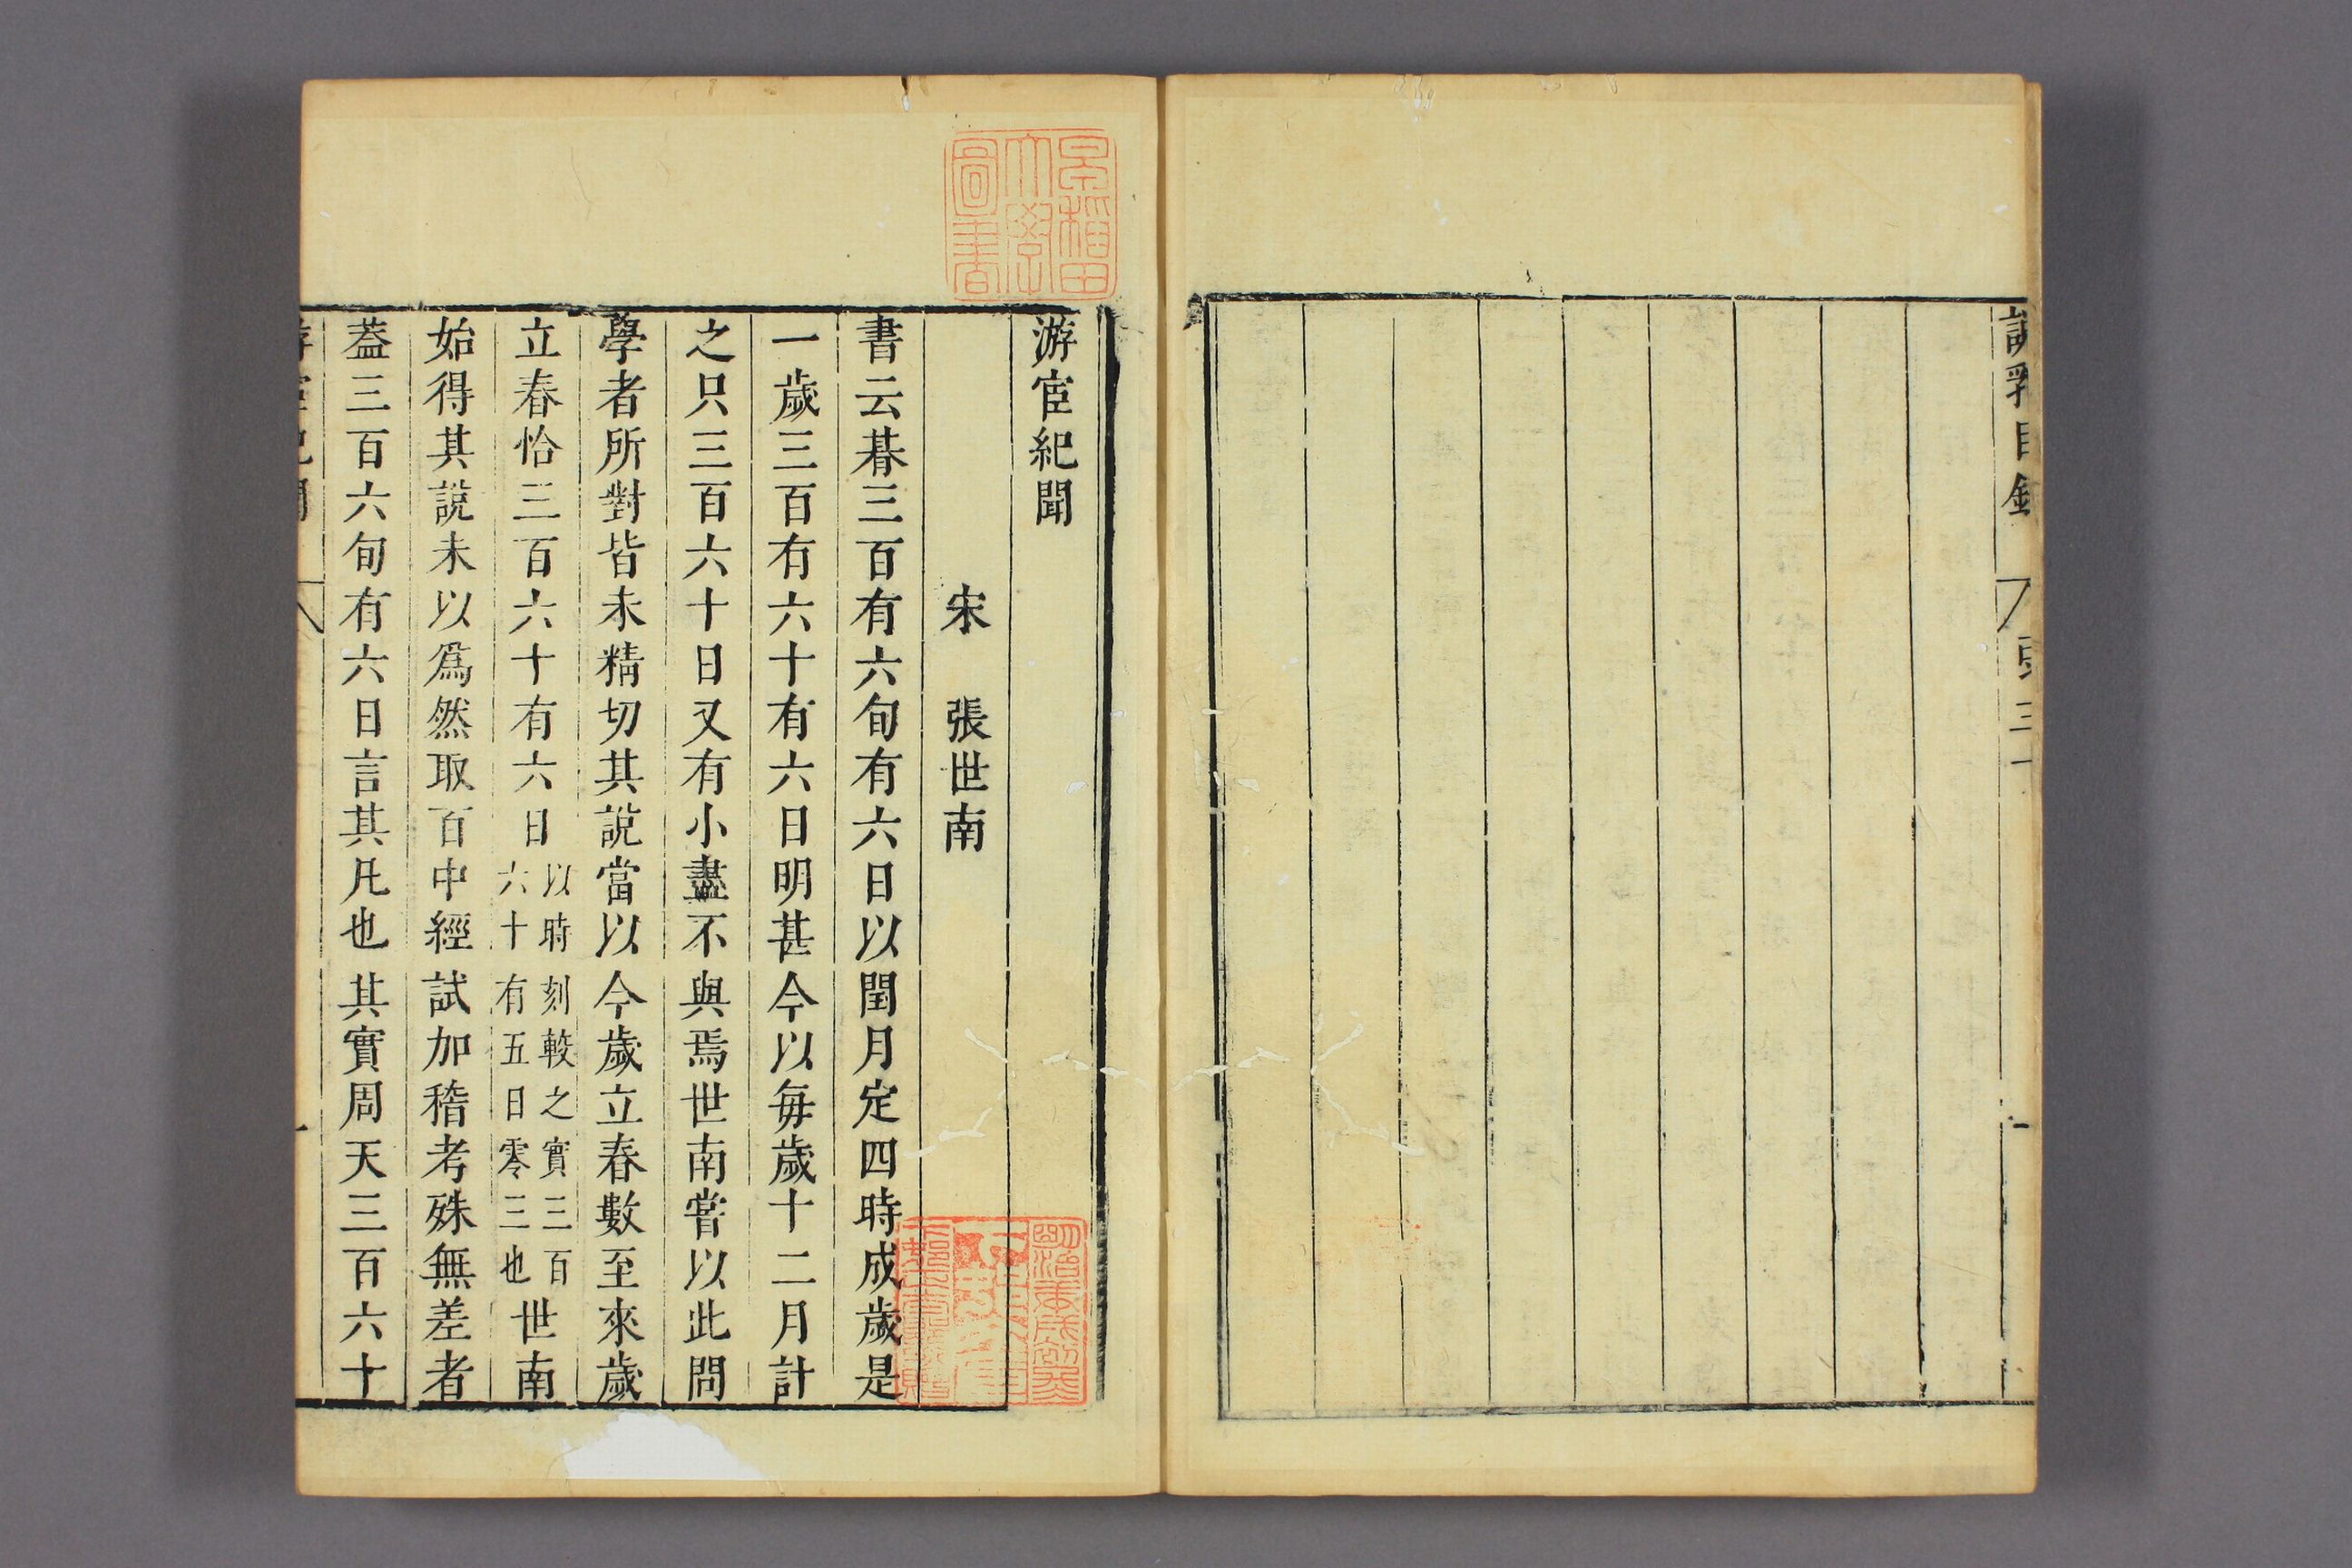 說郛目錄
弓三十
一
游宦紀聞
宋 張世南
書云朞三百有六旬有六日以閏月定四時成歲是
一歲三百有六十有六日明甚今以每歲十二月計
之只三百六十日又有小盡不與焉世南嘗以此問
學者所對皆未精切其說當以今歲立春數至來歲
立春恰三百六十有六日
以時刻較之實三百
六十有五日零三也
世南
始得其說未以爲然取百中經試加稽考殊無差者
葢三百六旬有六日言其凡也其實周天三百六十
游宦紀聞
一
早稻田
大學
圖書